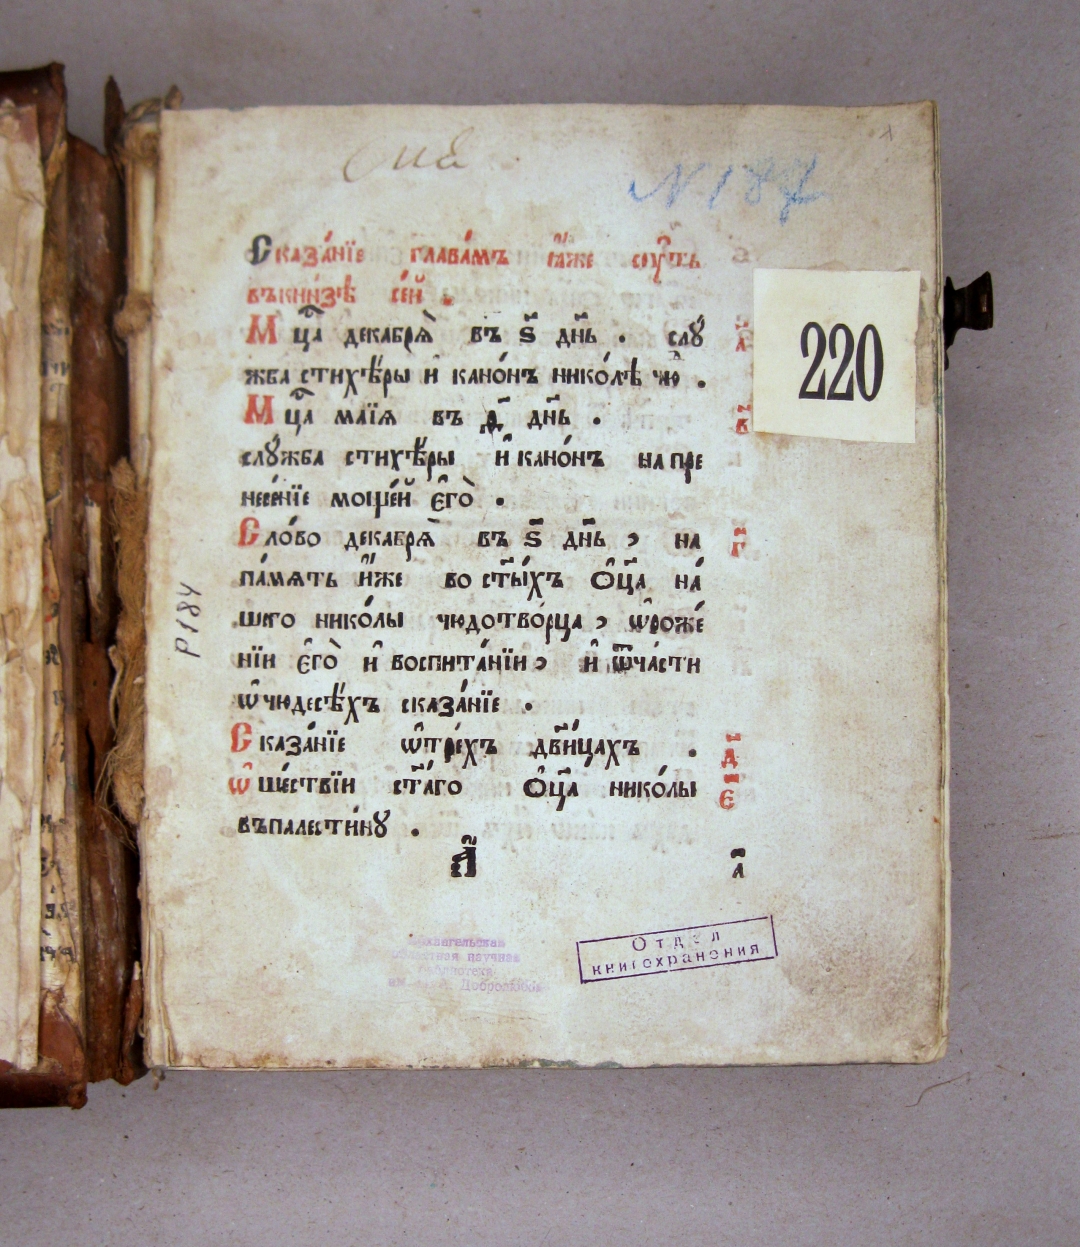 N 187
Сказа́нїе глава́мъ ꙗ҆́же сꙋ́ть
въкни́зѣ се́й .
Мц҃а декабрѧ̀ въ ѕ҃ дн҃ь . слꙋ́
жба стихѣ́ры и҆ кано́нъ нико́лѣ чю̀ .
а҃
220
Мц҃а маїѧ въ ѳ҃ дн҃ь .
в҃
слꙋ́жба стихѣ́ры и҆ кано́нъ на пре
несе́нїе моще́й є҆гѡ̀ .
Сло́во декабрѧ̀ въ ѕ҃ дн҃ь , на
г҃
па́мѧть и҆́же во ст҃ы́хъ Ѻ҆ц҃а на́
шего нико́лы чюдотво́рца , ѡ҆роже́
нїи є҆го̀ и҆ воспита́нїи , и҆ ѿча́сти
ѡ҆чюдесѣ́хъ сказа́нїе .
Р184
Сказа́нїе ѡ҆тре́хъ дв҃и́цахъ .
д҃
Ѡ҆ше́ствїи ст҃а́го Ѻ҆ц҃а̀ нико́лы
є҃
въпалести́нꙋ .
а҃
а҃
Архангельская
областная научная
библиотека
им Добролюбова
Отдел
книгохранения